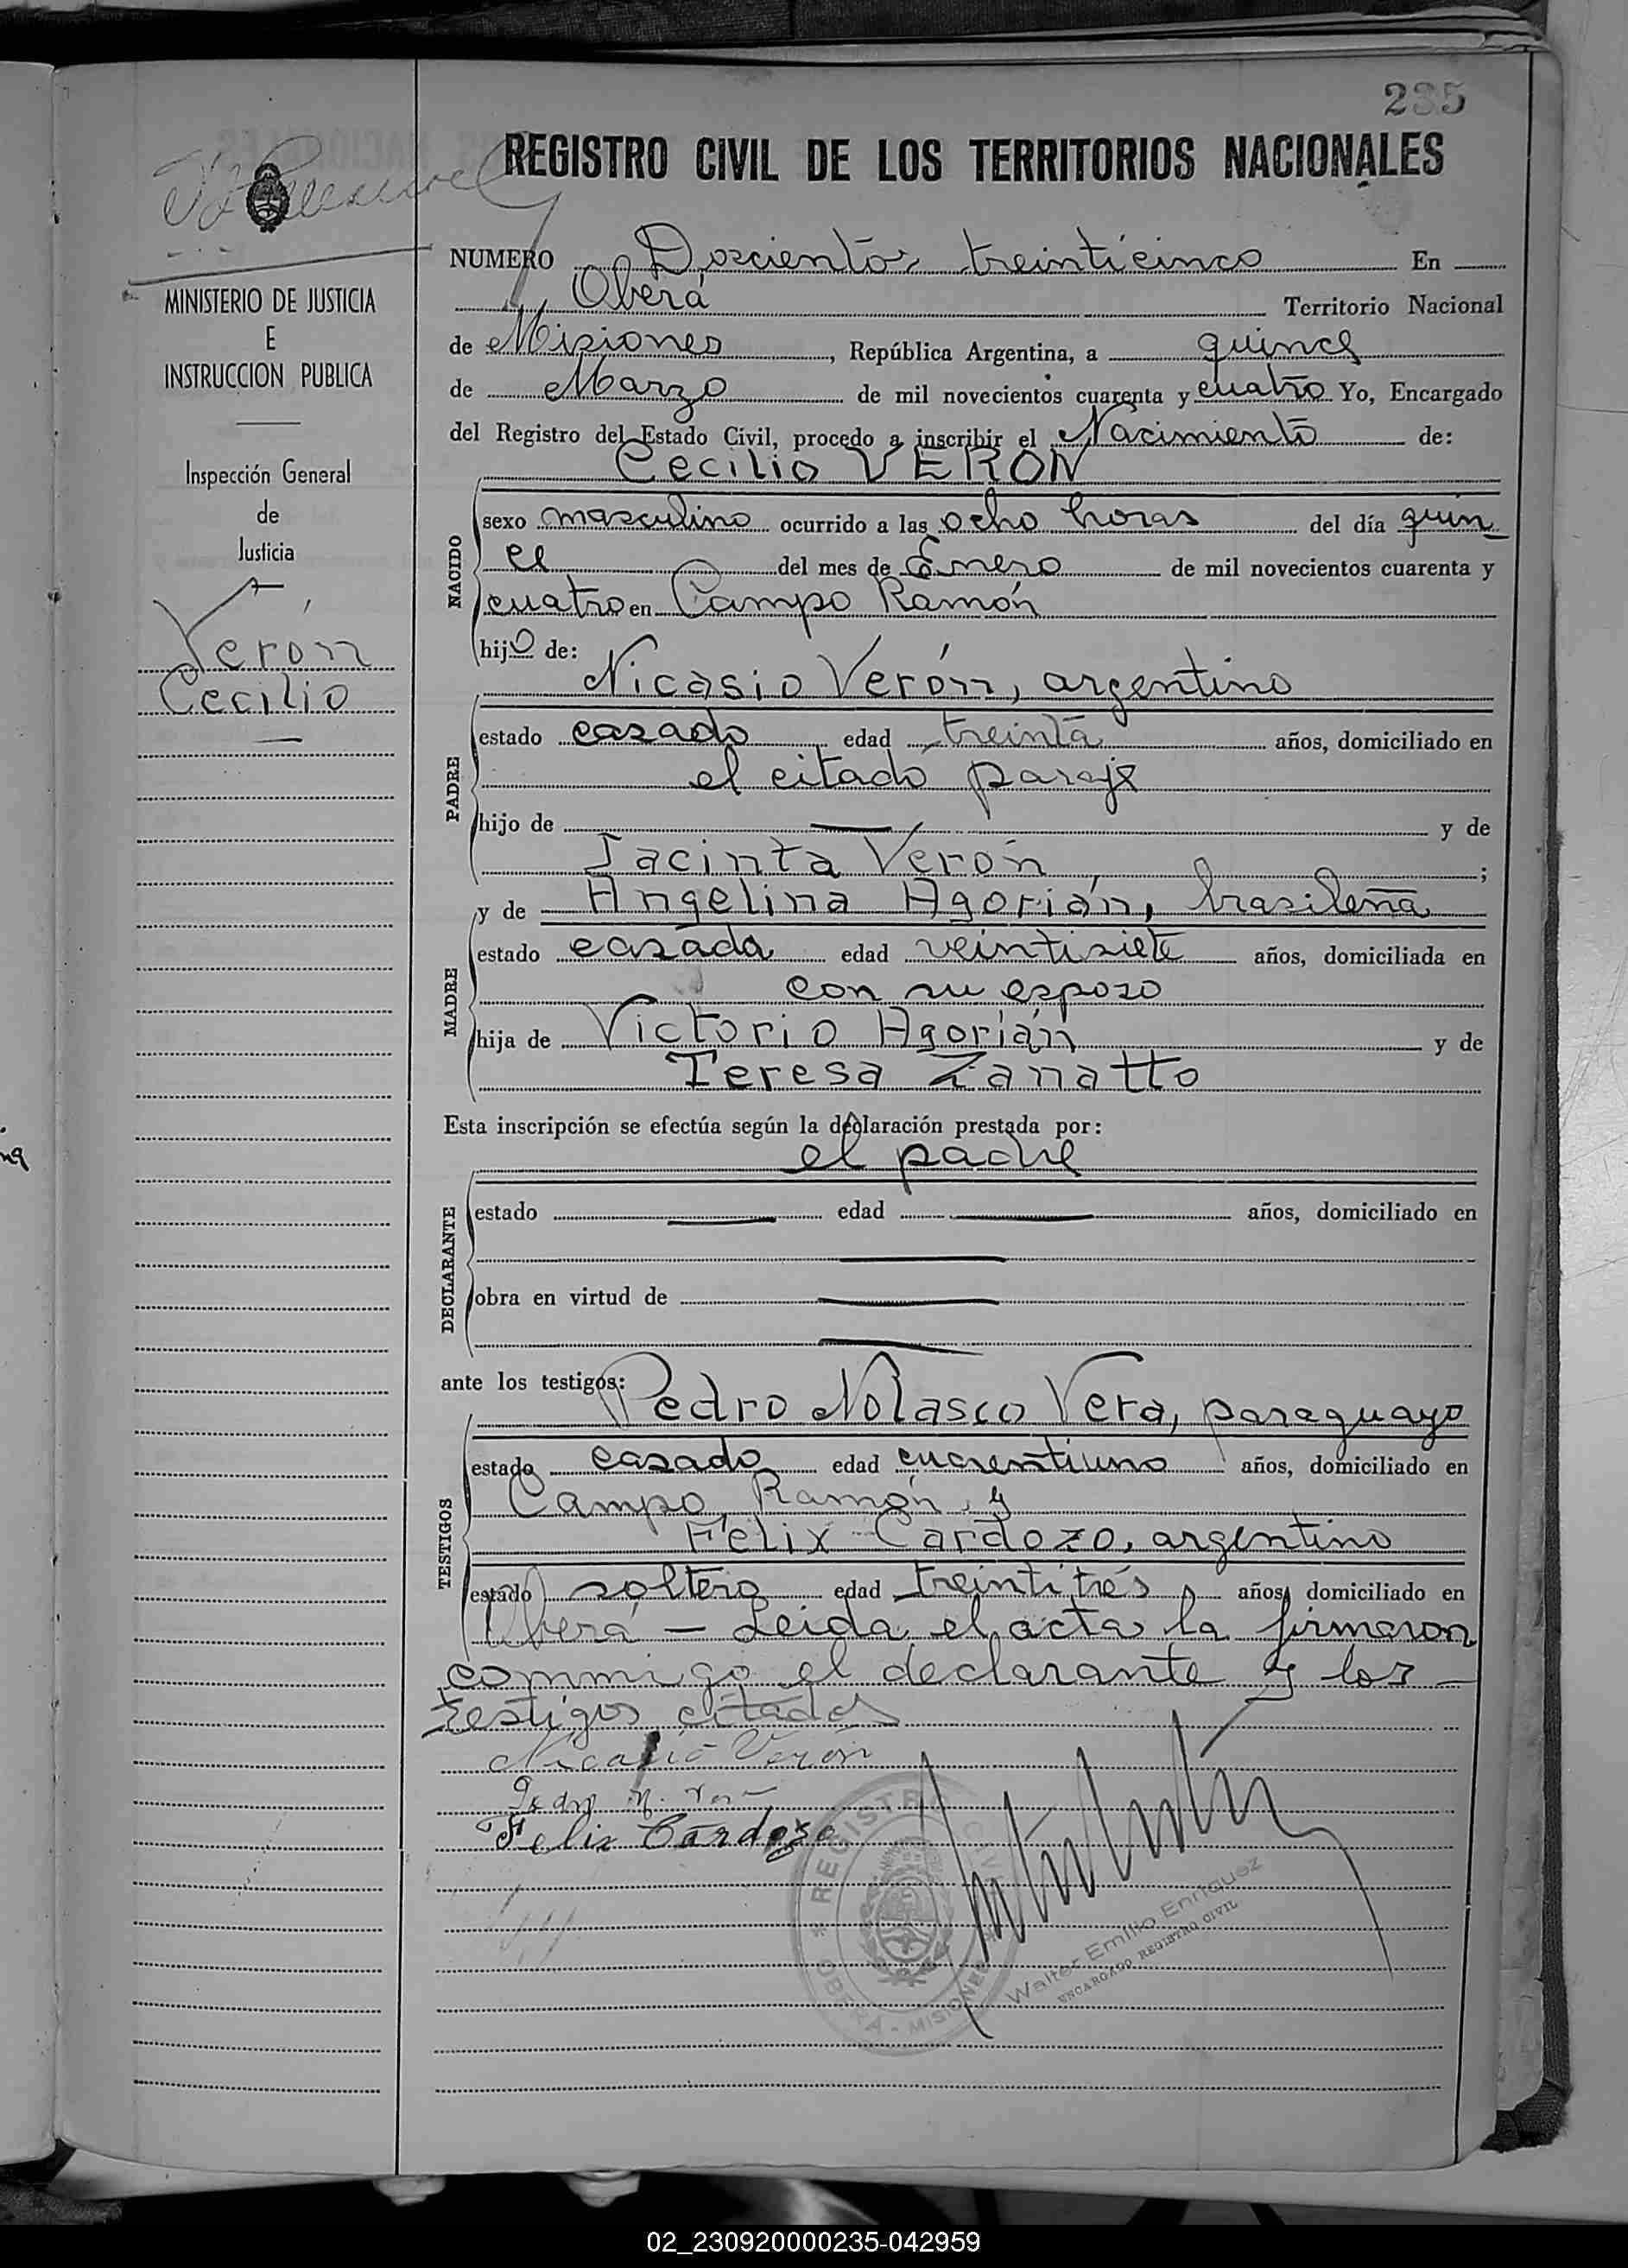 235
REGISTRO CIVIL DE LOS TERRITORIOS NACIONALES
MINISTERIO DE JUSTICIA
E
INSTRUCCION PUBLICA
Inspección General
de
Justicia
Verón
Cecilio
NUMERO Doscientos treinticinco En
Oberá Territorio Nacional
de Misiones, República Argentina, a quince
de Marzo de mil novecientos cuarenta y cuatro Yo, Encargado
del Registro del Estado Civil, procedo a inscribir el Nacimiento de:
Cecilio VERON
NACIDO
sexo masculino ocurrido a las ocho horas del día quin
ce del mes de Enero de mil novecientos cuarenta y
cuatro en Campo Ramón
hijo de:
PADRE
Nicasio Verón, argentino
estado casado edad treinta años, domiciliado en
el citado paraje
hijo de — y de
Jacinta Verón ;
MADRE
y de Angelina Agorián, brasileña
estado casada edad veintisiete años, domiciliada en
con su esposo
hija de Victorio Agorián y de
Teresa Zanatto
Esta inscripción se efectúa según la declaración prestada por:
el padre
DECLARANTE
estado — edad — años, domiciliado en
—
obra en virtud de —
—
ante los testigos:
TESTIGOS
Pedro Nolasco Vera, paraguayo
estado casado edad cuarentiuno años, domiciliado en
Campo Ramón y
Felix Cardozo, argentino
estado soltero edad treintitrés años, domiciliado en
Oberá — Leida el acta la firmaron
commigo el declarante y los —
testigos citados
Nicasio Verón
Pedro N. Vera
Felix Cardozo
REGISTRO CIVIL
OBERÁ - MISIONES
Walter Emilio Enriquez
ENCARGADO REGISTRO CIVIL
02_230920000235-042959